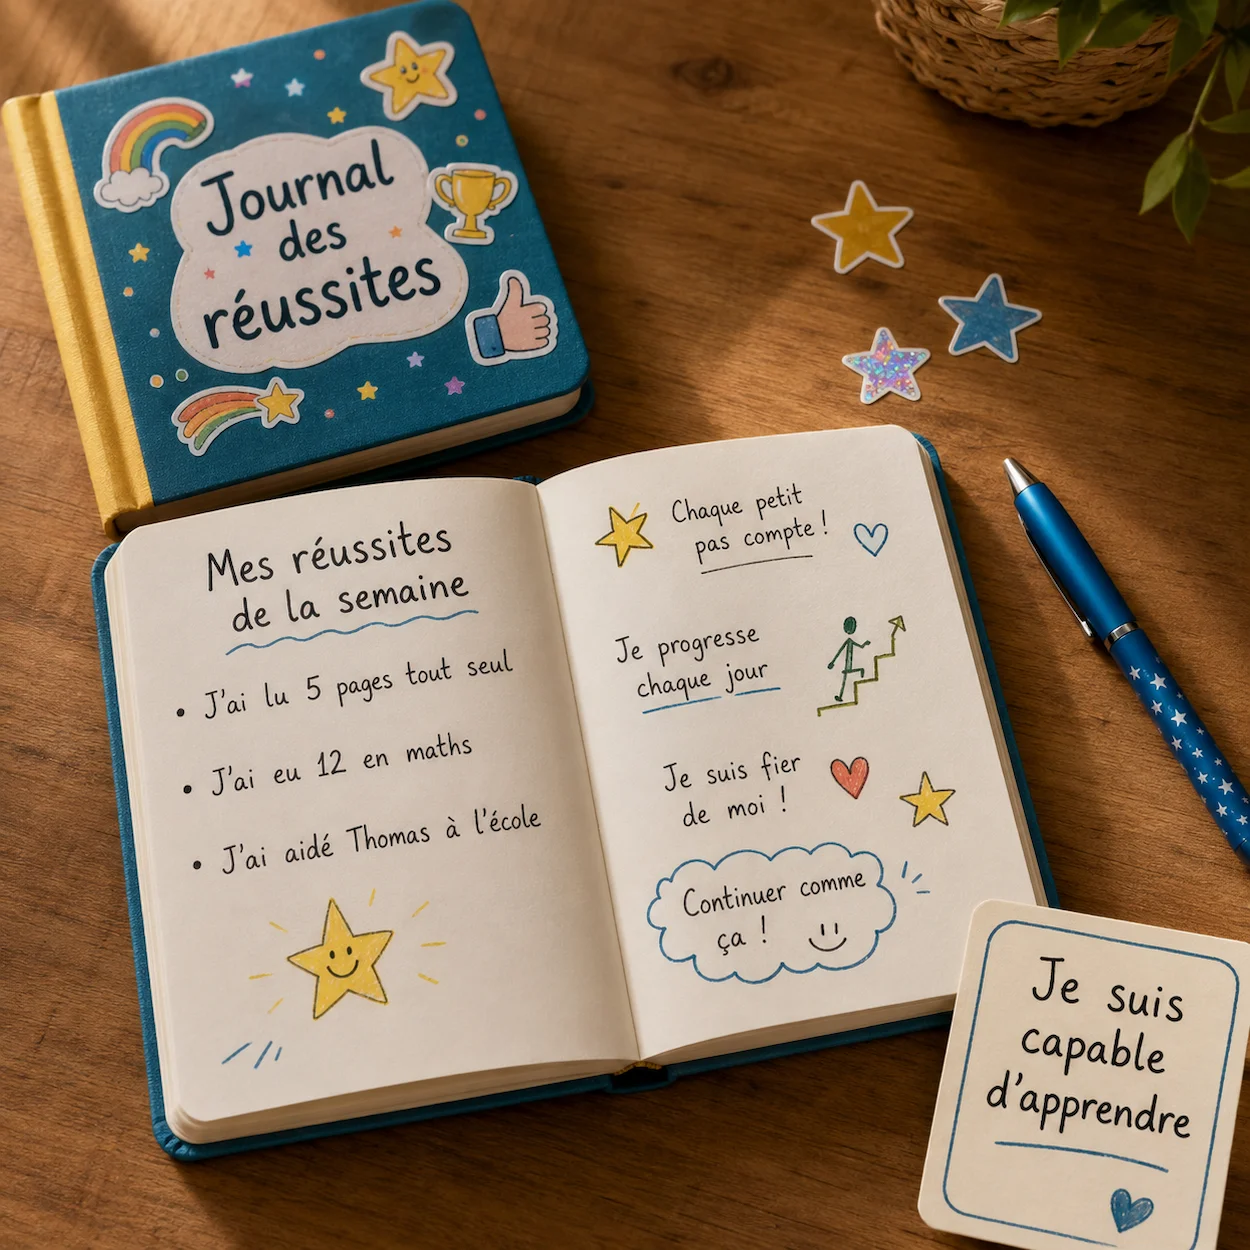 Journal
des
réussites
Mes réussites
de la semaine
• J'ai lu 5 pages tout seul
• J'ai eu 12 en maths
• J'ai aidé Thomas à l'école
Chaque petit
pas compte !
Je progresse
chaque jour
Je suis fier
de moi !
Continuer comme
ça !
Je suis
capable
d'apprendre